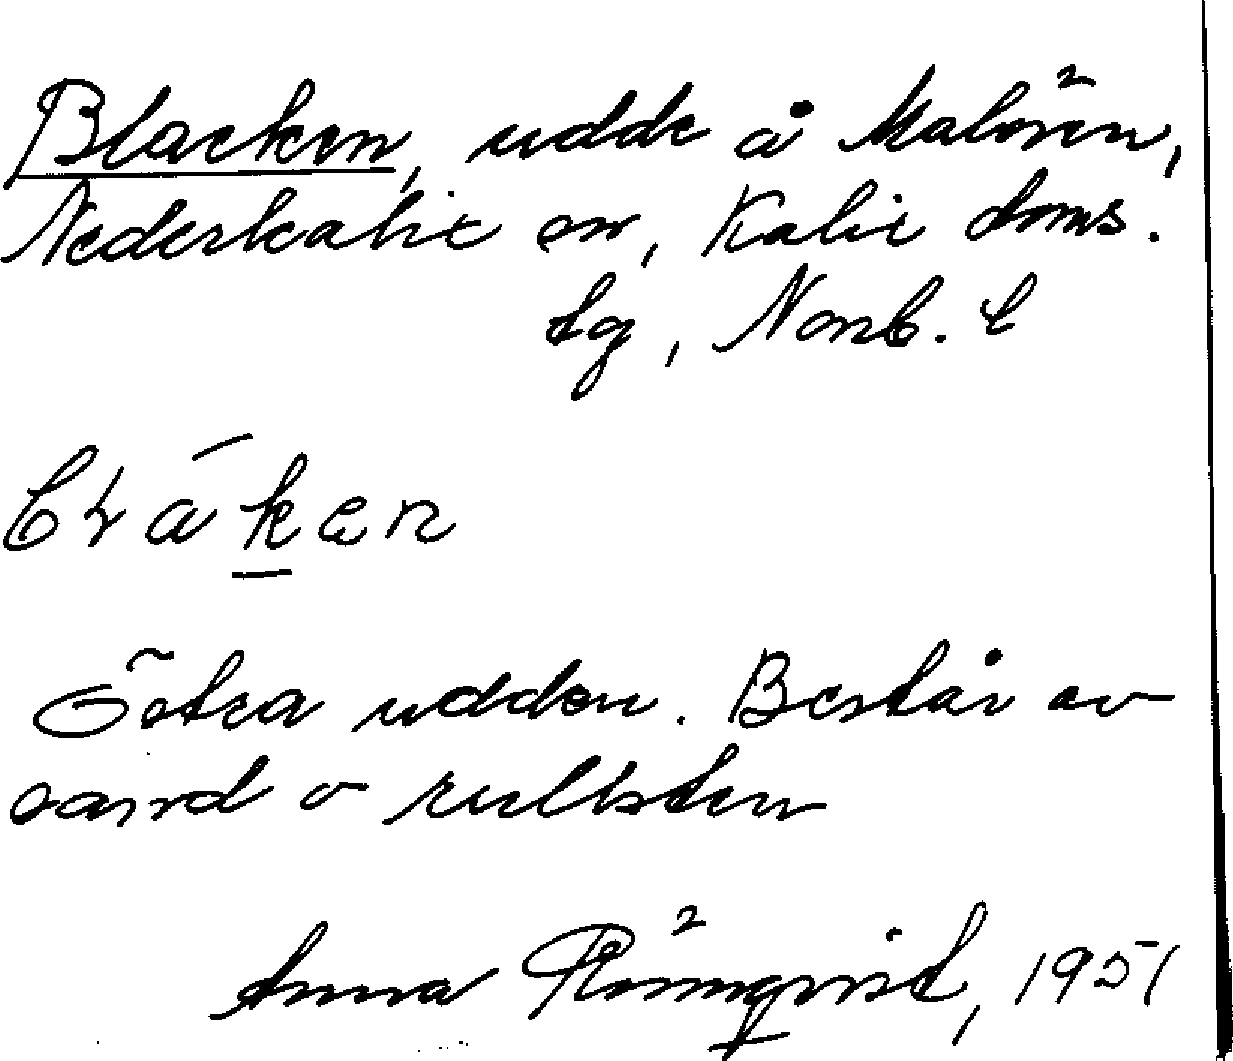 Blacken, udde å Malören,
Nederkalix sn, Kalix doms.
sg, Norrb. l
Östra udden. Består av
sand o rullsten
Anna Rönnqvist, 1951